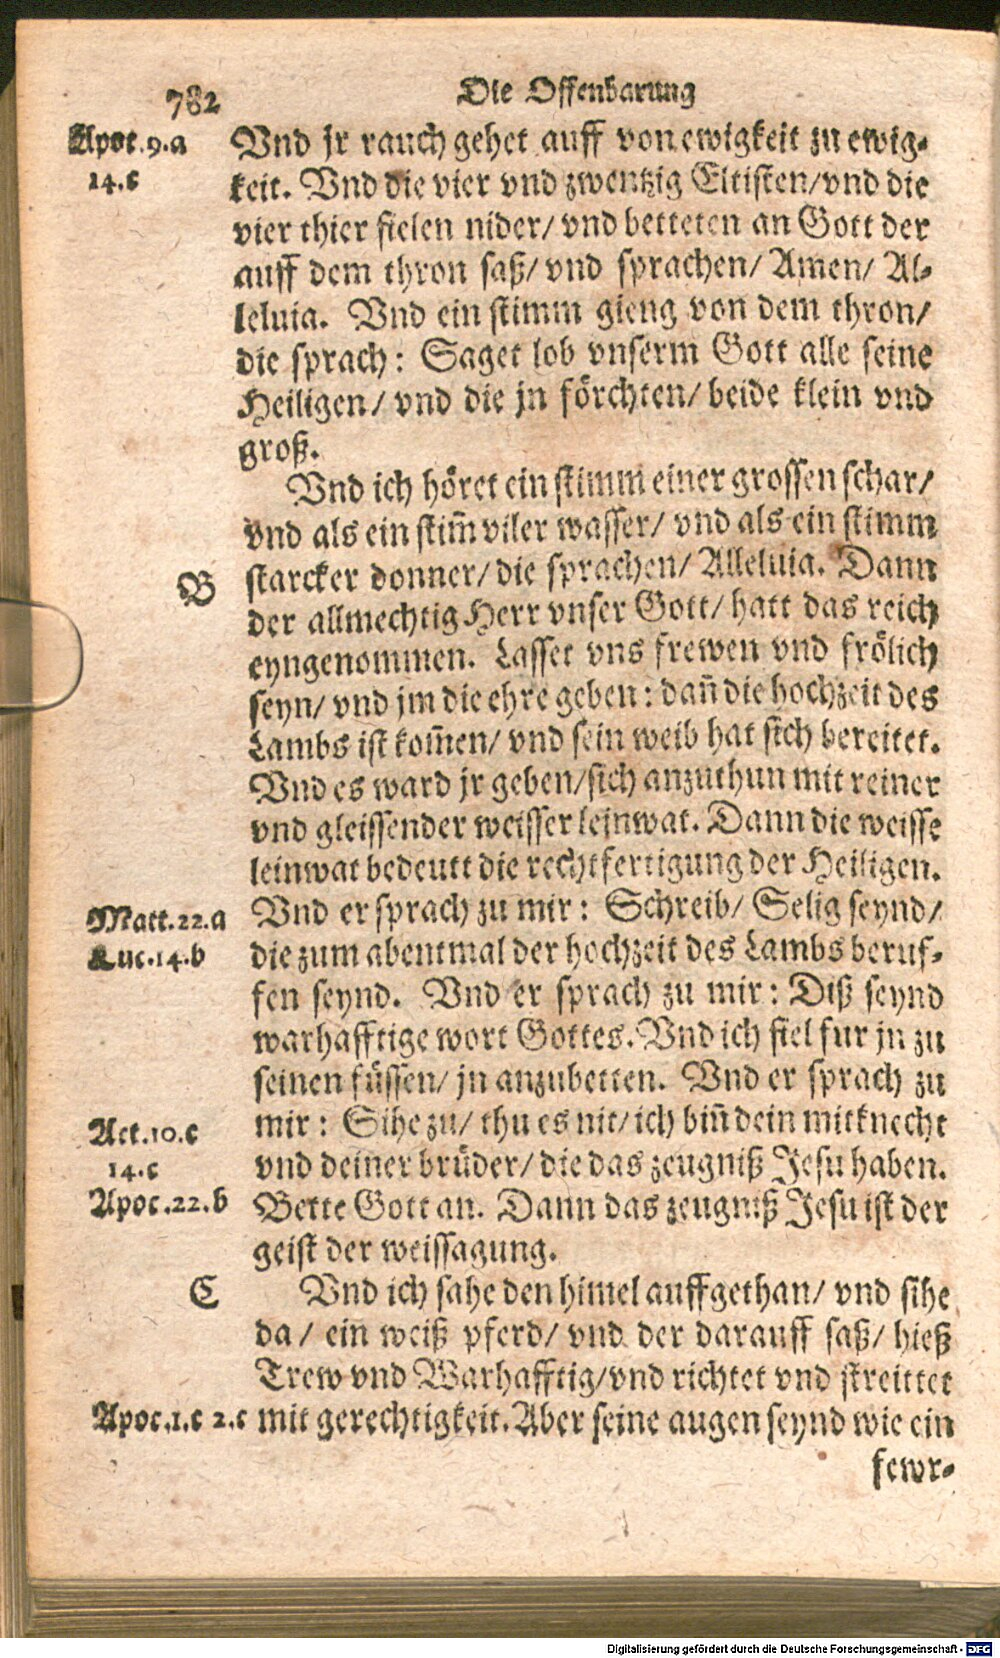 782
Die Offenbarung
Apoc.9.a
14.c
Vnd jr rauch gehet auff von ewigkeit zu ewig-
keit. Vnd die vier vnd zwentzig Eltisten/vnd die
vier thier fielen nider/ vnd betteten an Gott der
auff dem thron saß/ vnd sprachen/ Amen/ Al-
leluia. Vnd ein stimm gieng von dem thron/
die sprach: Saget lob vnserm Gott alle seine
Heiligen/ vnd die jn förchten/ beide klein vnd
groß.
Vnd ich höret ein stimm einer grossen schar/
vnd als ein stim̃ viler wasser/ vnd als ein stimm
B
starcker donner/ die sprachen/ Alleluia. Dann
der allmechtig Herr vnser Gott/ hatt das reich
eyngenommen. Lasset vns frewen vnd frölich
seyn/ vnd jm die ehre geben: dañ die hochzeit des
Lambs ist kom̃en/ vnd sein weib hat sich bereitet.
Vnd es ward jr geben/sich anzuthun mit reiner
vnd gleissender weisser leinwat. Dann die weisse
leinwat bedeutt die rechtfertigung der Heiligen.
Matt.22.a
Luc.14.b
Vnd er sprach zu mir: Schreib/ Selig seynd/
die zum abentmal der hochzeit des Lambs beruf-
fen seynd. Vnd er sprach zu mir: Diß seynd
warhafftige wort Gottes. Vnd ich fiel fur jn zu
seinen füssen/ jn anzubetten. Vnd er sprach zu
Act.10.c
14.c
Apoc.22.b
mir: Sihe zu/ thu es nit/ ich biñ dein mitknecht
vnd deiner brüder/ die das zeugniß Jesu haben.
Bette Gott an. Dann das zeugniß Jesu ist der
geist der weissagung.
C
Vnd ich sahe den himel auffgethan/ vnd sihe
da/ ein weiß pferd/ vnd der darauff saß/ hieß
Trew vnd Warhafftig/vnd richtet vnd streittet
Apoc.1.c 2.c
mit gerechtigkeit. Aber seine augen seynd wie ein
fewr-
Digitalisierung gefördert durch die Deutsche Forschungsgemeinschaft - DFG